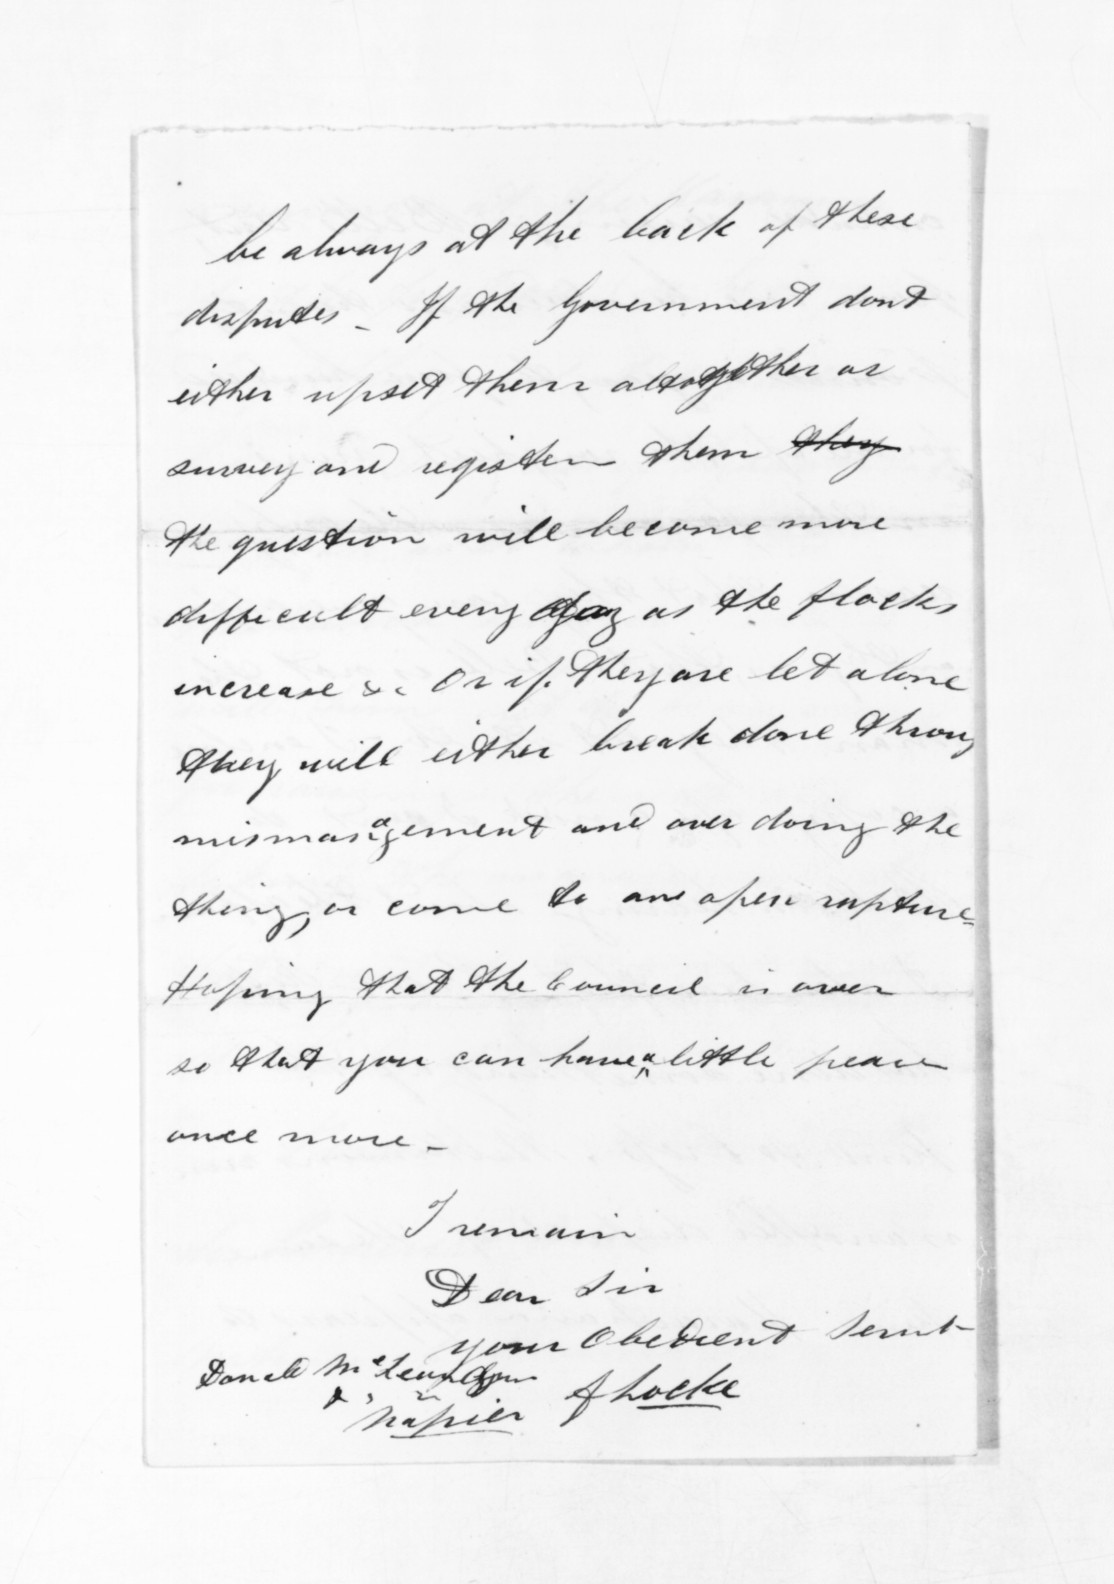 be always at the back of these
disputes _ If the Government dont
either upset them altogether or
survey and register them ~~they~~
the question will become more
difficult every day as the flocks
increase &c Or if they are let alone
they will either break done throug
mismanagement and over doing the
thing, or come to an open rupture_
Hoping that the Council is over
so that you can have a little peace
once more _
I remain
Dear Sir
your Obedient Servt
Donald McLean Esqr
S Locke
Napier